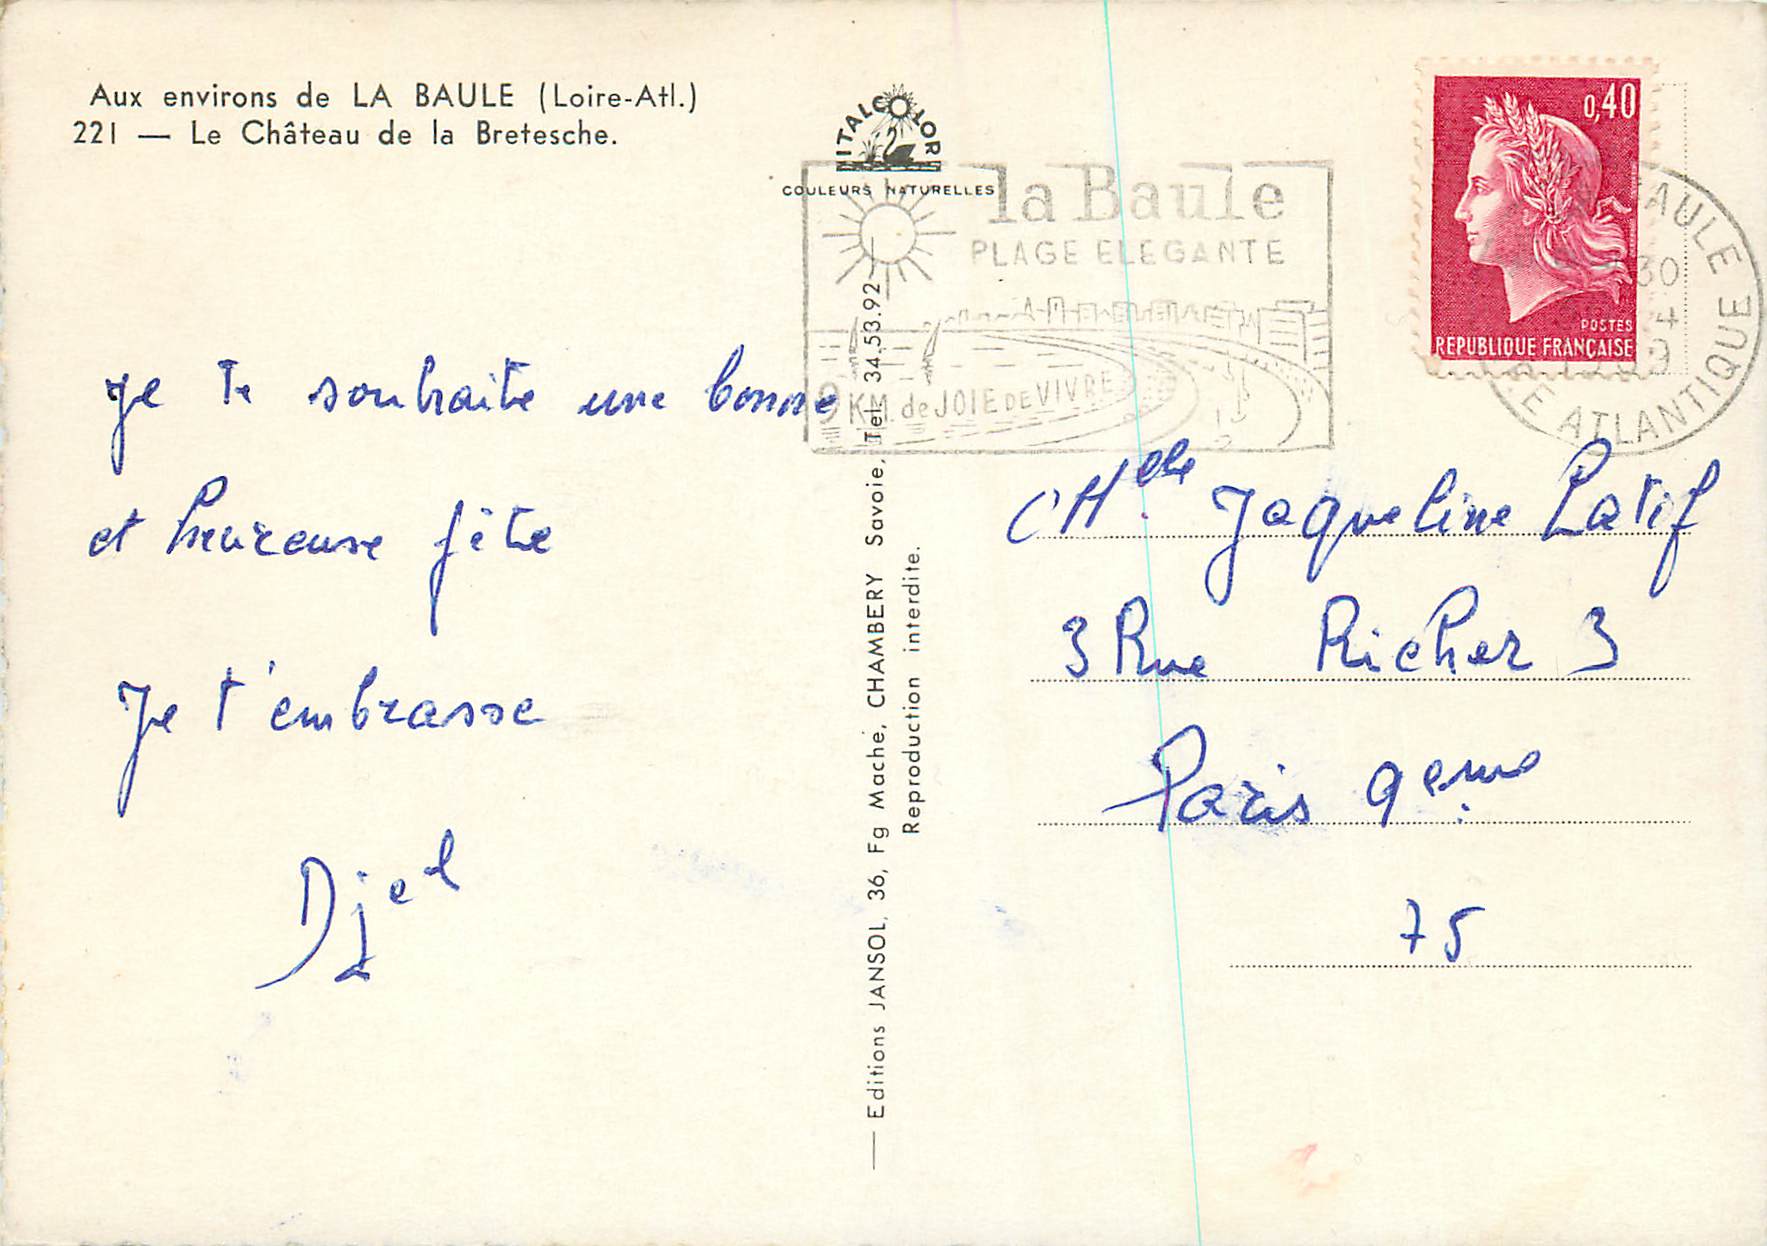 Aux environs de LA BAULE (Loire-Atl.)
221 — Le Château de la Bretesche.
ITALCOLOR
COULEURS NATURELLES
la Baule
PLAGE ELEGANTE
9 KM. de JOIE DE VIVRE
0,40
POSTES
REPUBLIQUE FRANÇAISE
LA BAULE
30
4
1969
LOIRE ATLANTIQUE
je te souhaite une bonne
et heureuse fête
Je t'embrasse
Djel
— Editions JANSOL, 36, Fg Maché, CHAMBERY Savoie, Tel. 34.53.92 —
Reproduction interdite.
Melle Jaqueline Latif
3 Rue Richer 3
Paris 9eme
75